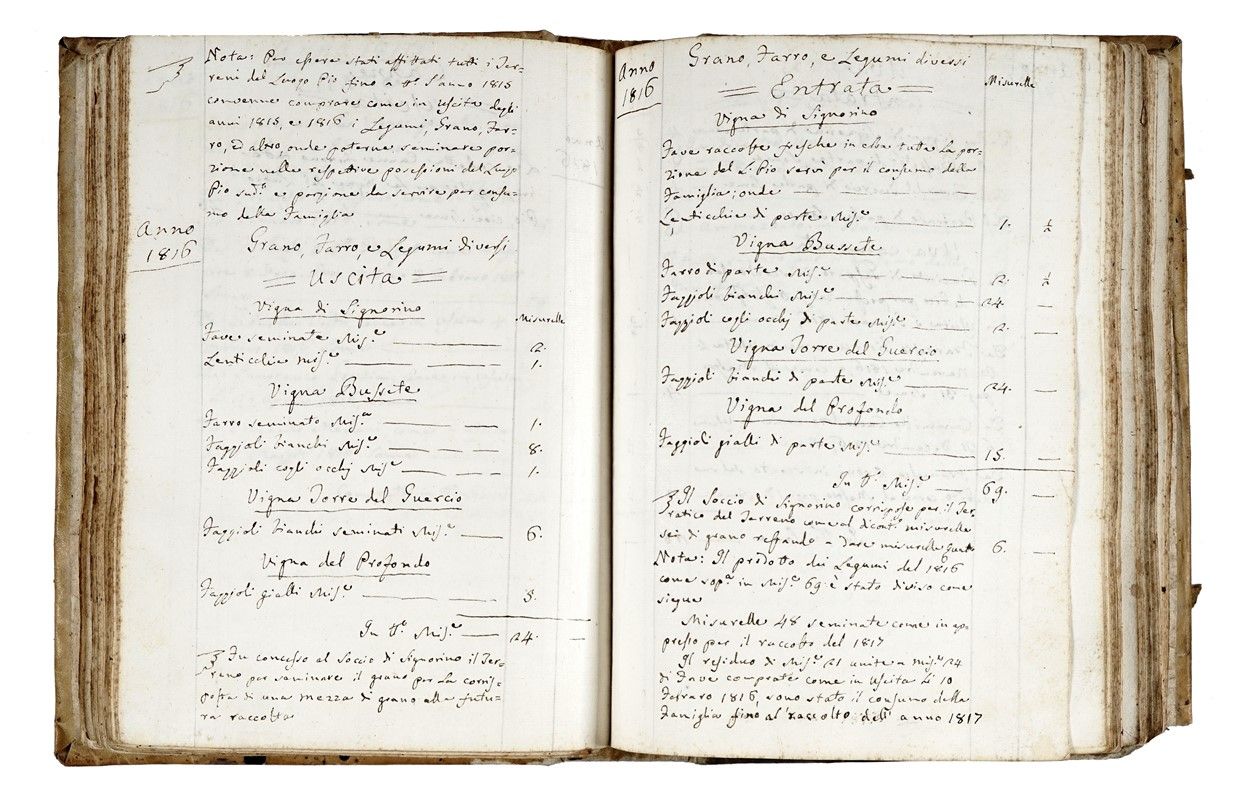 Nota: Per essere stati affittati tutti i Ter=
reni del Luogo Pio fino a tt.o l'anno 1815
convenne comprare come in uscita degli
anni 1815, e 1816 i Legumi, Grano, Far=
ro, ed altro, onde poterne seminare por=
zione nelle respettive possessioni del Luogo
Pio sud.o e porzione da servire per consu=
mo della Famiglia
Anno
1816
Grano, Farro, e Legumi diversi
= Uscita =
Vigna di Signorino
Misurelle
Fave seminate Mis.e 2.
Lenticchie mis.e 1.
Vigna Bussete
Farro seminato Mis.a 1.
Faggioli bianchi Mis.e 8.
Faggioli cogli occhj Mis.e 1.
Vigna Torre del Guercio
Faggioli bianchi seminati Mis.e 6.
Vigna del Profondo
Faggioli gialli Mis.e 5.
In tt.o Mis.e 24. —
Fu concesso al Soccio di Signorino il Ter=
reno per seminare il grano per la corris=
posta di una mezza di grano alla futu=
ra raccolta
Anno
1816
Grano, Farro, e Legumi diversi
= Entrata =
Misurelle
Vigna di Signorino
Fave raccolte fresche in erba tutta la por=
zione del L. Pio servì per il consumo della
Famiglia; onde — —
Lenticchie di parte Mis.e 1. ½
Vigna Bussete
Farro di parte Mis.e 2. ½
Faggioli bianchi Mis.e 24. —
Faggioli cogli occhj di parte Mis.e 2. —
Vigna Torre del Guercio
Faggioli bianchi di parte Mis.e 24. —
Vigna del Profondo
Faggioli gialli di parte Mis.e 15. —
In tt.o Mis.e 69. —
Il Soccio di Signorino corrispose per il Ter=
ratico del Terreno come al dicont.o misurelle
sei di grano restando a dare misurelle 6. —
Nota: Il prodotto dei Legumi del 1816
come sop.a in Mis.e 69 è stato diviso come
siegue
Misurelle 48 seminate come in ap=
presso per il raccolto del 1817
Il residuo di Mis.e 21 unite a mis.e 24
di Fave comprate come in uscita li 10
Ferraro 1816, sono state il consumo della
Famiglia fino al raccolto dell' anno 1817